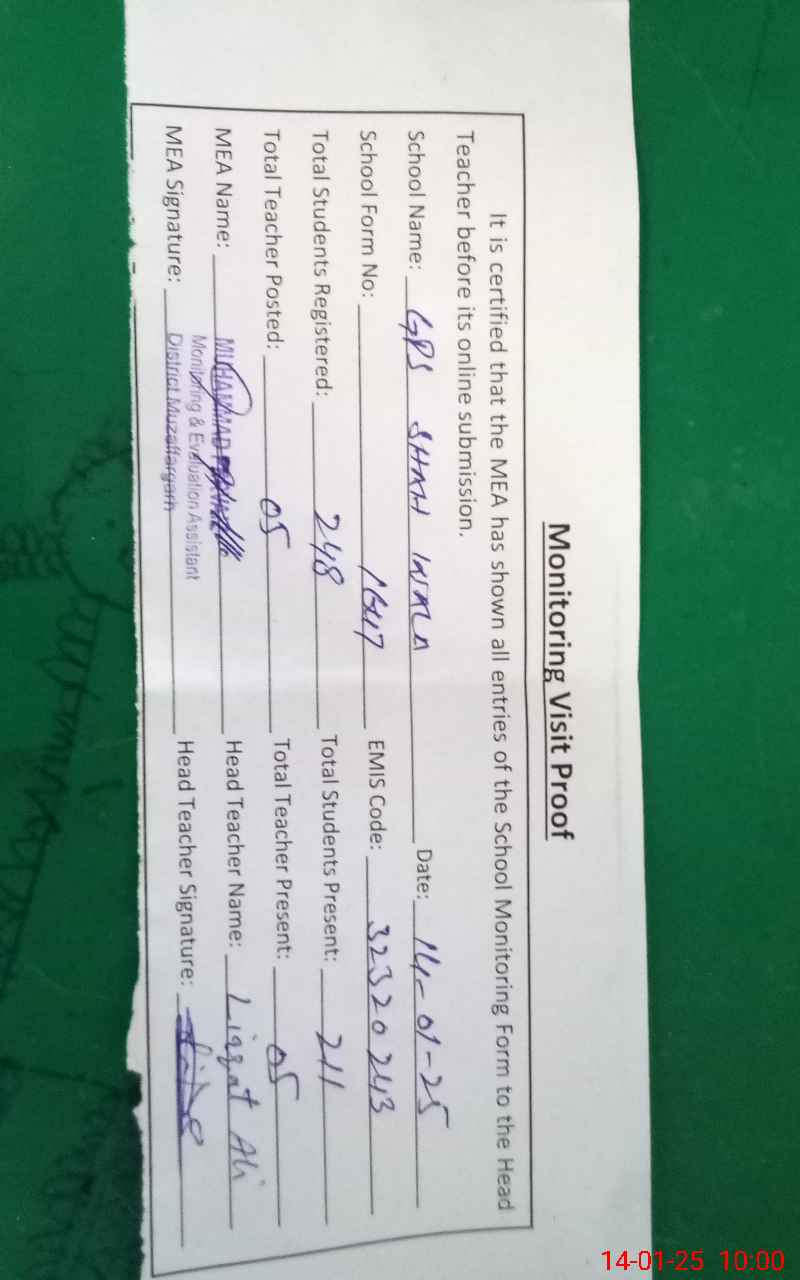 Monitoring Visit Proof
It is certified that the MEA has shown all entries of the School Monitoring Form to the Head
Teacher before its online submission.
School Name: GPS SHAH WALA Date: 14-01-25
School Form No: EMIS Code: 32320243
Total Students Registered: 248 Total Students Present: 211
Total Teacher Posted: 05 Total Teacher Present: 05
MEA Name: MUHAMMAD Head Teacher Name: Liaqat Ali
Monitoring & Evaluation Assistant
MEA Signature: District Muzaffargarh Head Teacher Signature:
14-01-25 10:00